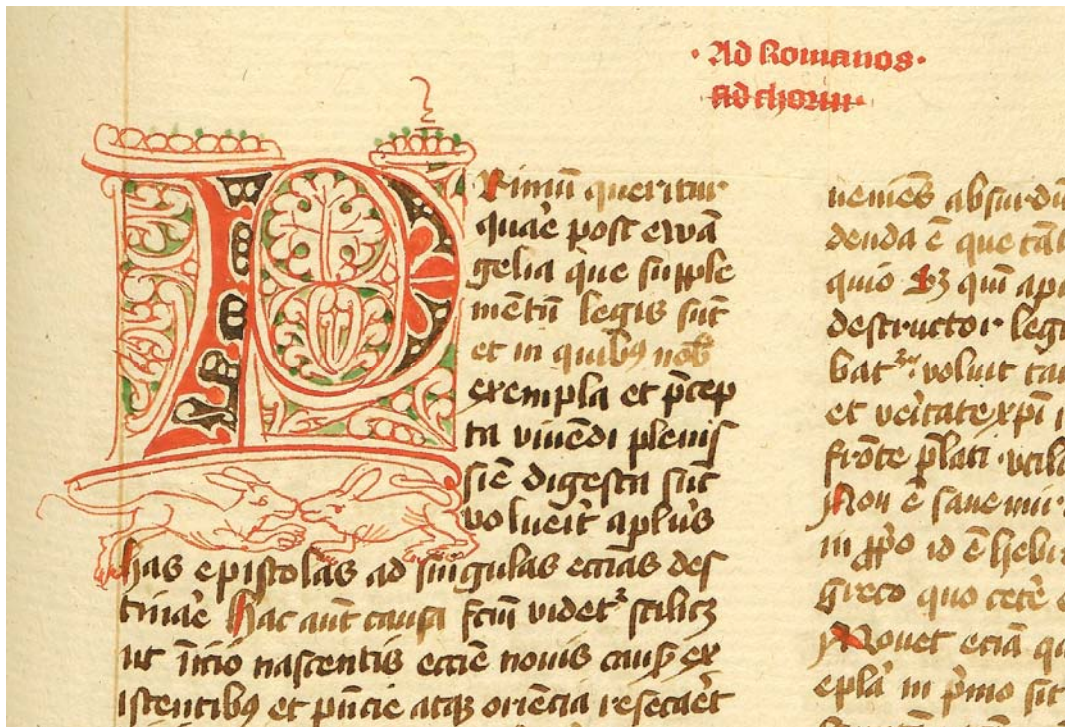 · Ad Romanos ·
Ad chorin ·
Primū queritur
quar̄e post ewā
gelia que supple
mentū legis sūt
et in quibꝰ nob̄
exempla et p̄cep
ta viuendi plenis
siē digesta sūt
voluerīt aplūs
has epistolas ad singulas ecc̄ias des
tinar̄e Hac aut̄ causa fc̄m videt᷑ scilicꝫ
ut īnicio nascentis eccīe nouis caus̄ ex
istentibꝰ et pn̄cie atqꝫ oriēcia resecar̄et
nemēs absurdū
denda ē que
quio Sꝫ qm̄
destructor legi
bat᷑ voluit
et veritate xpī
frōte p̄lati
Non ē sane
in io id ē hebr
greco quo cete
Mouet eciā qu
epla in p̄mo sit